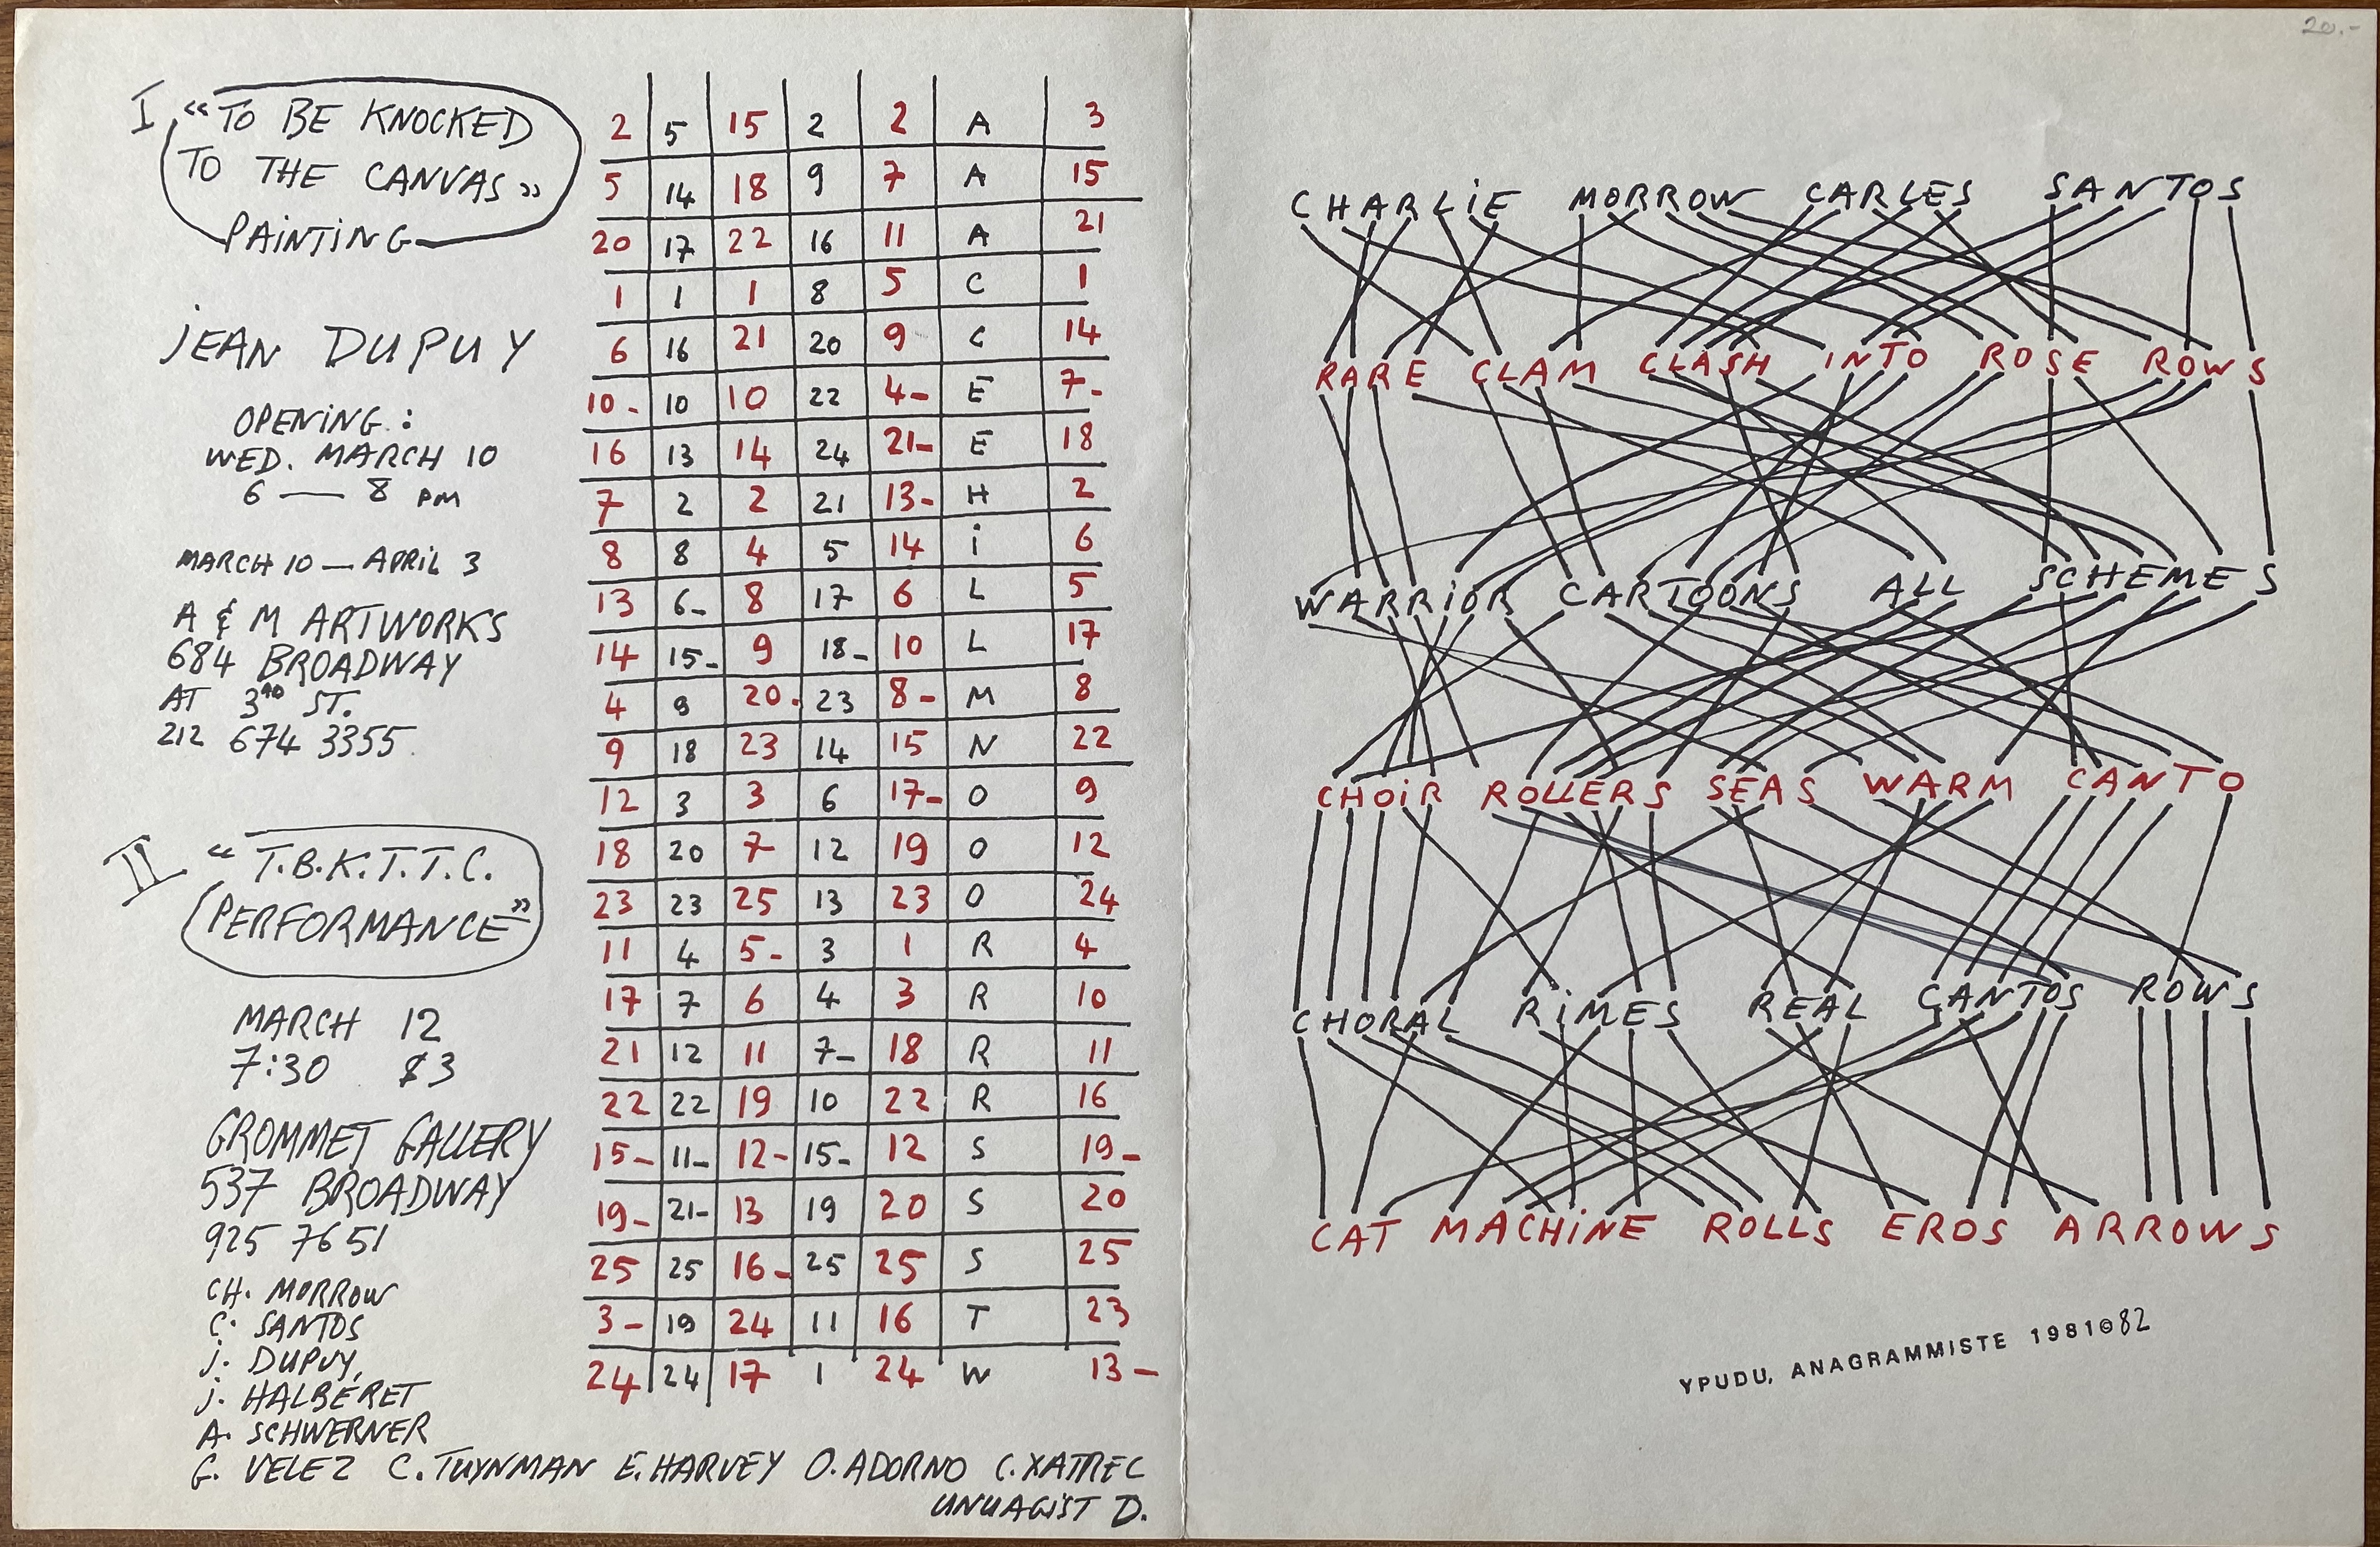 I "TO BE KNOCKED
TO THE CANVAS"
PAINTING
JEAN DUPUY
OPENING :
WED. MARCH 10
6 — 8 PM
MARCH 10 — APRIL 3
A & M ARTWORKS
684 BROADWAY
AT 3RD ST.
212 674 3355
II "T.B.K.T.T.C.
PERFORMANCE"
MARCH 12
7:30 $3
GROMMET GALLERY
537 BROADWAY
925 7651
CH. MORROW
C. SANTOS
J. DUPUY,
J. HALBÉRET
A. SCHWERNER
G. VELEZ C. TUYNMAN E. HARVEY O. ADORNO C. XATREC
UNUAGIST D.
2 5 15 2 2 A 3
5 14 18 9 7 A 15
20 17 22 16 11 A 21
1 1 1 8 5 C 1
6 16 21 20 9 C 14
10- 10 10 22 4- E 7-
16 13 14 24 21- E 18
7 2 2 21 13- H 2
8 8 4 5 14 i 6
13 6- 8 17 6 L 5
14 15- 9 18- 10 L 17
4 9 20. 23 8- M 8
9 18 23 14 15 N 22
12 3 3 6 17- O 9
18 20 7 12 19 O 12
23 23 25 13 23 O 24
11 4 5- 3 1 R 4
17 7 6 4 3 R 10
21 12 11 7- 18 R 11
22 22 19 10 22 R 16
15- 11- 12- 15- 12 S 19-
19- 21- 13 19 20 S 20
25 25 16- 25 25 S 25
3- 19 24 11 16 T 23
24 24 17 1 24 W 13-
20.-
CHARLiE MORROW CARLES SANTOS
RARE CLAM CLASH INTO ROSE ROWS
WARRiOR CARTOONS ALL SCHEMES
CHOiR ROLLERS SEAS WARM CANTO
CHORAL RiMES REAL CANTOS ROWS
CAT MACHiNE ROLLS EROS ARROWS
YPUDU, ANAGRAMMISTE 1981©82